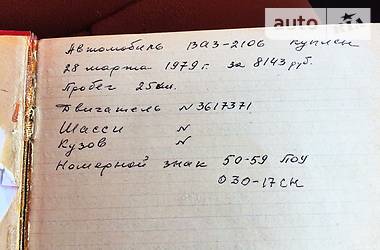 auto
Автомобиль ВАЗ-2106 куплен
28 марта 1979 г. за 8143 руб.
Пробег 25км.
Двигатель N 3617371
Шасси N
Кузов N
Номерной знак 50-59 ПОУ
О 30-17 СН